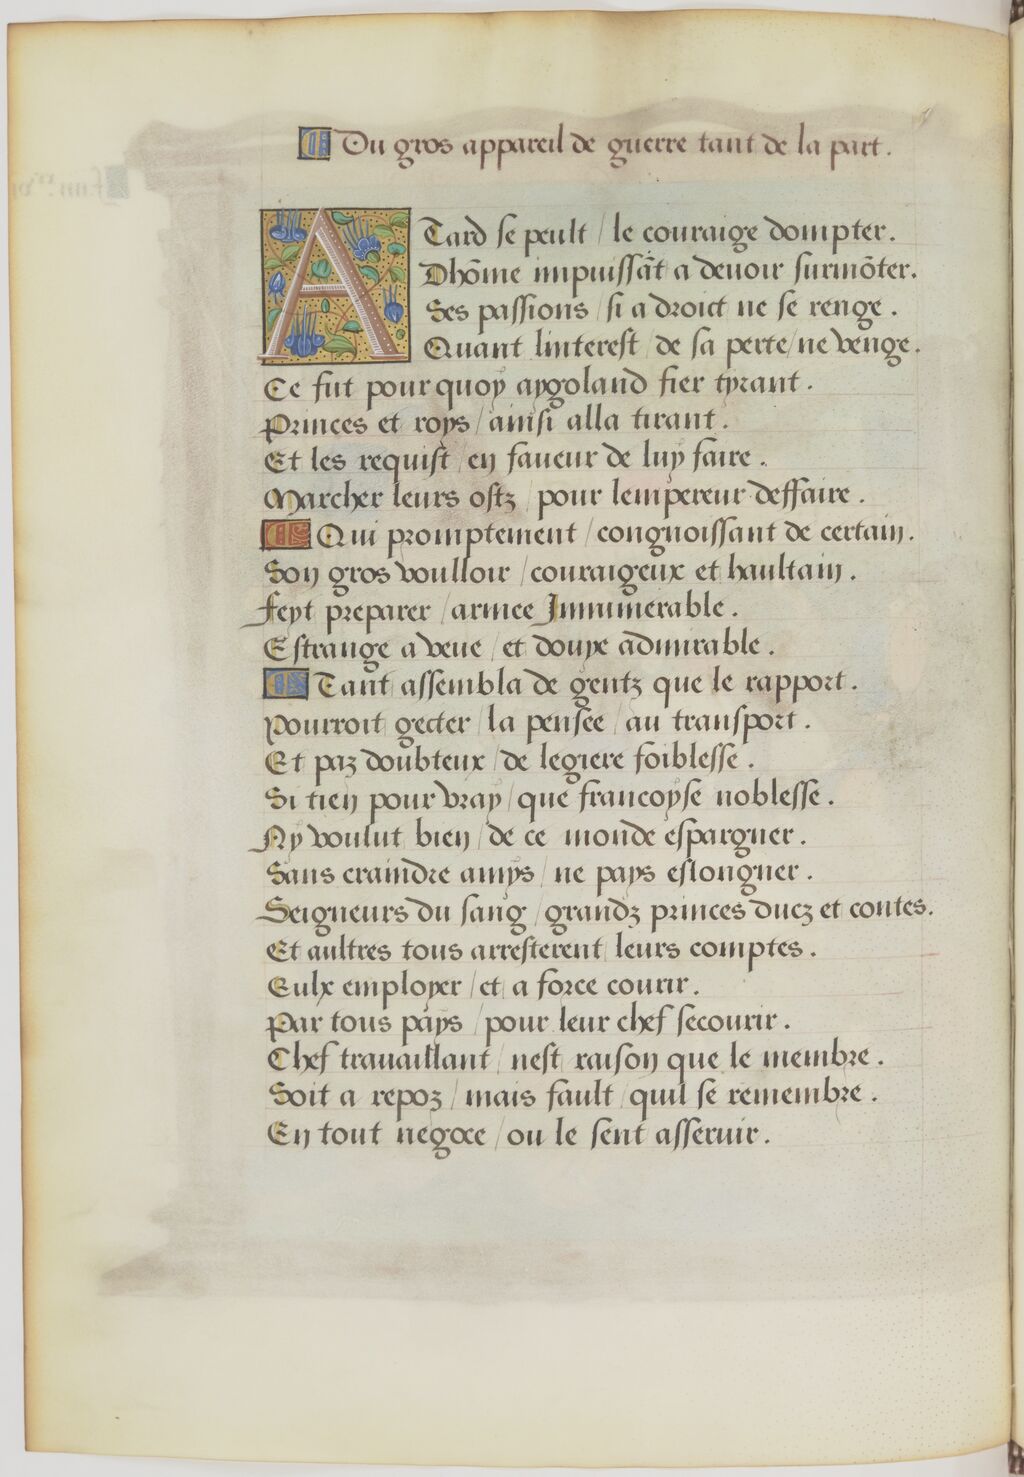 Du gros appareil de guerre tant de la part.
A Tard se peult / le couraige dompter.
Dhõme impuissãt a devoir surmõter.
Ses passions / si a droict ne se renge.
Quant linterest / de sa perte / ne venge.
Ce fut pourquoy aygoland fier tyrant.
Princes et roys / ainsi alla tirant.
Et les requist / en faveur de luy faire.
Marcher leurs ostz / pour lempereur deffaire.
Qui promptement / congnoissant de certain.
Son gros voulloir / couraigeux et haultain.
Feyt preparer / armee Innumerable.
Estrange a veue / et douyx admirable.
Tant assembla de gentz que le rapport.
Pourroit gecter / la pensee / au transport.
Et paz doubteux / de legiere foiblesse.
Si tien pour vray / que francoyse noblesse.
Ny voulut bien / de ce monde espargner.
Sans craindre amys / ne pays eslongner.
Seigneurs du sang / grandz princes ducz et contes.
Et aultres tous arresterent / leurs comptes.
Eulx employer / et a force courir.
Par tous pays / pour leur chef secourir.
Chef travaillant / nest raison que le membre.
Soit a repoz / mais fault / quil se remembre.
En tout negoce / ou le sent asseruir.